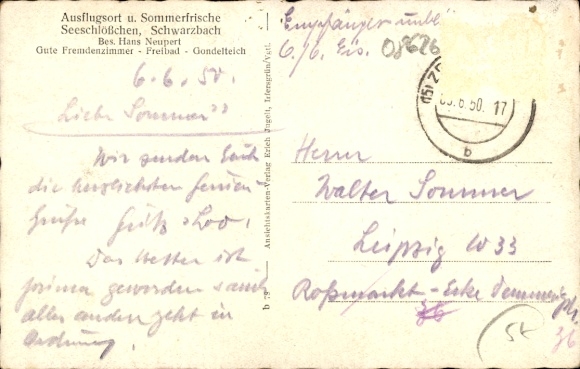 Ausflugsort u. Sommerfrische
Seeschlößchen, Schwarzbach
Bes. Hans Neupert
Gute Fremdenzimmer - Freibad - Gondelteich
6.6.50.
Liebe Sommer's
Wir senden Euch
die herzlichsten Ferien-
Grüße Fritz u. Loo.
Das Wetter ist
prima geworden
alles andere geht in
Ordnung.
b 79
Ansichtskarten-Verlag Erich Jugelt, Irfersgrün/Vgtl.
Empfänger
6./6. Eis. 08626
6.50. 17
b
Herrn
Walter Sommer
Leipzig W33
Roßmarkt-Ecke
36
54
36